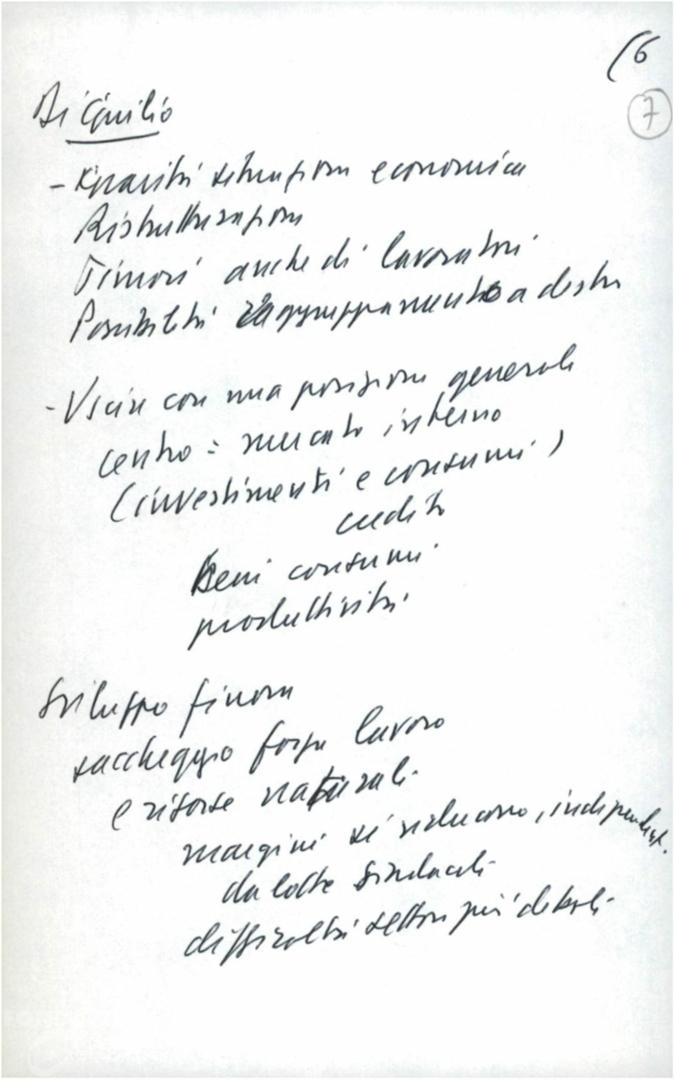 (6
7
Di Giulio
- Gravità situazione economica
Ristrutturazione
Timori anche di lavoratori
Possibilità raggruppamento a destra
- Uscire con una posizione generale
centro: mercato interno
(investimenti e consumi)
credito
Beni consumi
produttività
Sviluppo finora
saccheggio forza lavoro
e risorse naturali
margini si riducono, independent.
da lotte sindacali
difficoltà settori più deboli